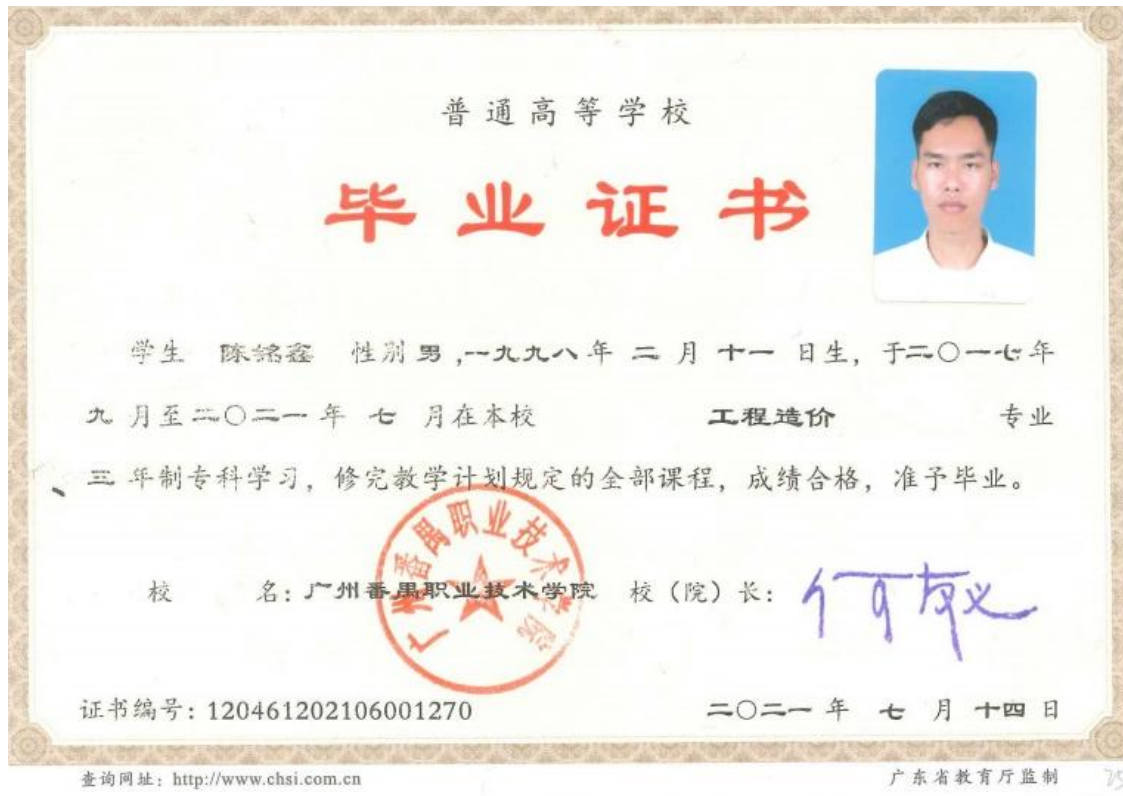 普通高等学校
毕业证书
学生 陈铭鑫 性别 男,一九九八年 二 月 十一 日生, 于二〇一七年
九 月至二〇二一 年 七 月在本校 工程造价 专业
三 年制专科学习, 修完教学计划规定的全部课程, 成绩合格, 准予毕业。
广州番禺职业技术学院
校 名: 广州番禺职业技术学院 校（院）长:
证书编号: 120461202106001270 二〇二一 年 七 月 十四 日
查询网址: http://www.chsi.com.cn 广东省教育厅监制